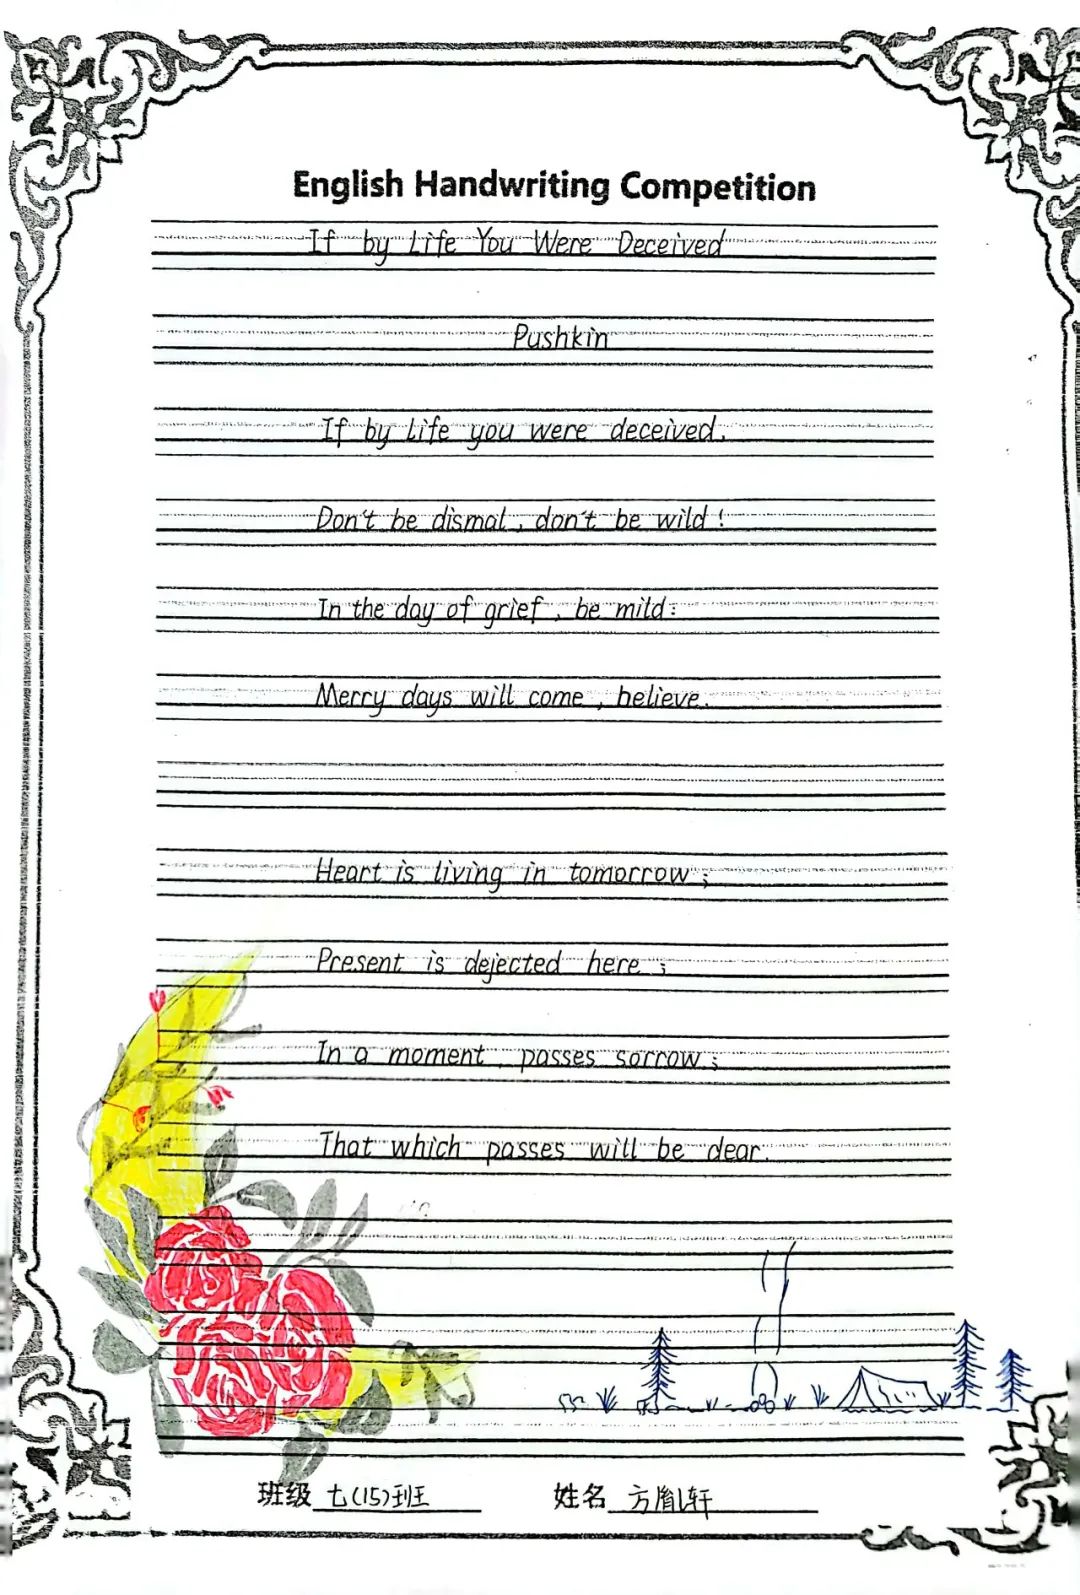 English Handwriting Competition
If by Life You Were Deceived
Pushkin
If by life you were deceived.
Don't be dismal, don't be wild!
In the day of grief, be mild:
Merry days will come, believe.
Heart is living in tomorrow;
Present is dejected here;
In a moment, passes sorrow;
That which passes will be dear.
班级 七(15)班 姓名 方胤轩